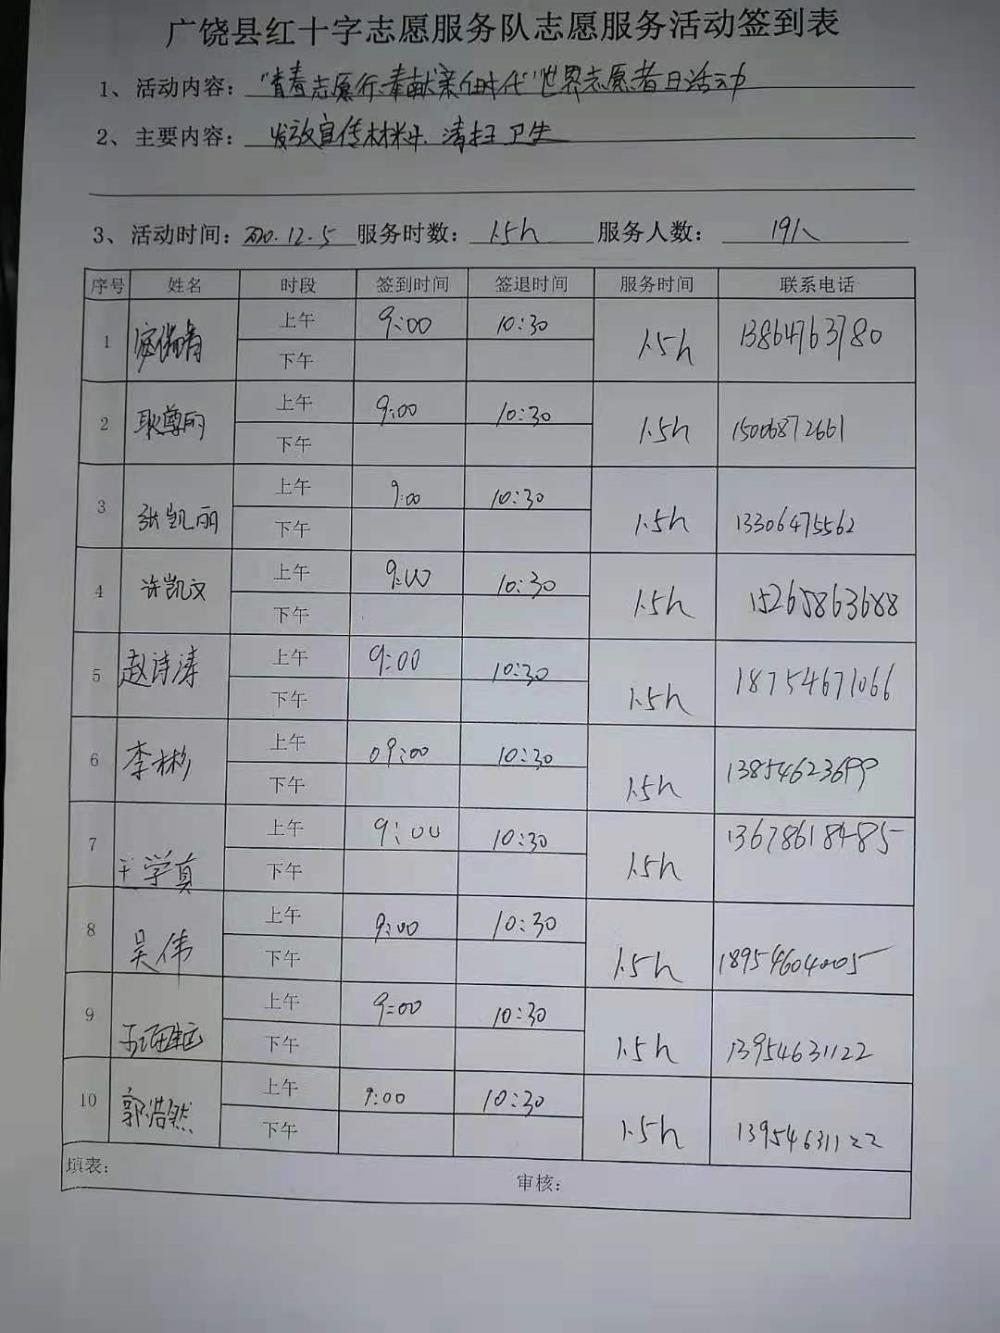 广饶县红十字志愿服务队志愿服务活动签到表
1、活动内容："青春志愿行·奉献新时代"世界志愿者日活动
2、主要内容：发放宣传材料、清扫卫生
3、活动时间：2020.12.5 服务时数：1.5h 服务人数：19人
序号 姓名 时段 签到时间 签退时间 服务时间 联系电话
1 上午 9:00 10:30 1.5h 13864763780
下午
2 耿尊丽 上午 9:00 10:30 1.5h 15006872661
下午
3 张凯丽 上午 9:00 10:30 1.5h 13306475562
下午
4 许凯文 上午 9:00 10:30 1.5h 15265863688
下午
5 赵诗涛 上午 9:00 10:30 1.5h 18754671066
下午
6 李彬 上午 09:00 10:30 1.5h 13854623699
下午
7 王学真 上午 9:00 10:30 1.5h 13678618485
下午
8 吴伟 上午 9:00 10:30 1.5h 18954604005
下午
9 上午 9:00 10:30 1.5h 13954631122
下午
10 郭浩然 上午 9:00 10:30 1.5h 13954631122
下午
填表： 审核：